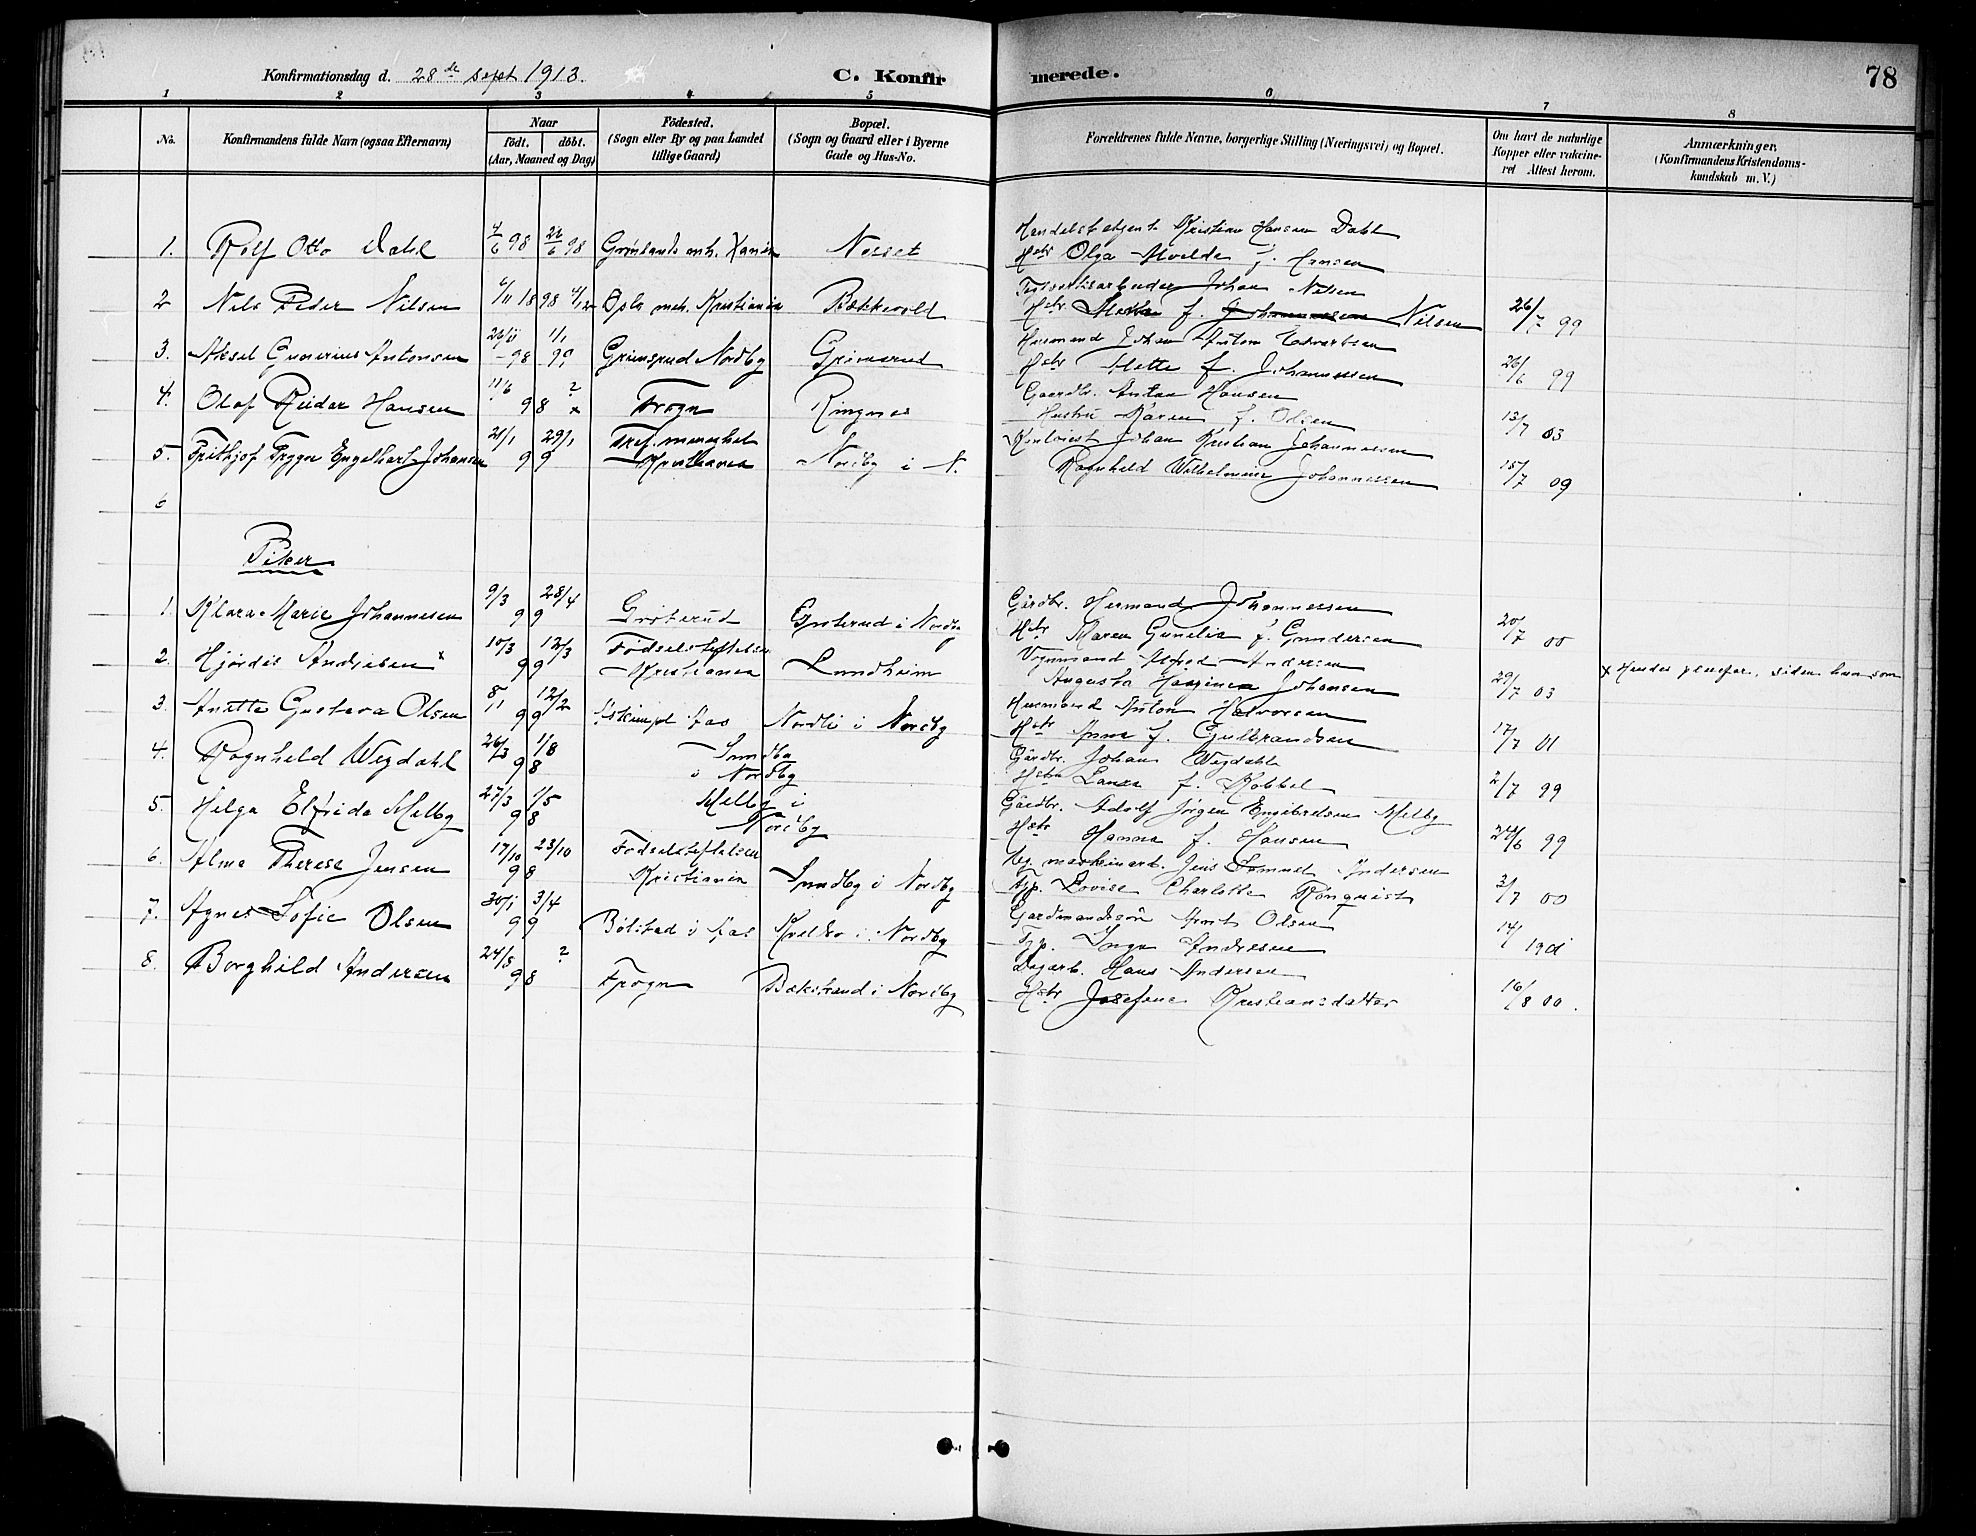 Konfirmationsdag d. 28de sept 1913.
C. Konfirmerede.
78
1 2 3 4 5 6 7 8
No.
Konfirmandens fulde Navn (ogsaa Efternavn)
Naar
födt. döbt.
(Aar, Maaned og Dag)
Födested.
(Sogn eller By og paa Landet
tillige Gaard)
Bopæl.
(Sogn og Gaard eller i Byerne
Gade og Hus-No.
Forældrenes fulde Navne, borgerlige Stilling (Næringsvei) og Bopæl.
Om havt de naturlige
Kopper eller vakcine-
ret Attest herom.
Anmærkninger.
(Konfirmandens Kristendoms-
kundskab m. V.)
1. Rolf Otto Dahl 4/6 98 26/6 98 Grønlands mh. Nesset
Kristian Hansen Dahl
Hstr Olga f. Hansen
2 Nils Peder Nilsen 1898 Oslo meh. Kristiania Bækkevold
Johan Nilsen
Hstr. f. Johannessen Nilsen 26/7 99
3. Aksel Gunerius Antonsen 26/11 - 98 1/1 99 Grimsrud Nordby Grimsrud
Husmand Johan Anton
Hstr Mette f. Johannessen 26/6 99
4. Olaf Reidar Hansen 11/6 98 ? x Frogn Ringnes
Gaardbr. Anton Hansen
Hustru Karen f. Olsen 13/7 03
5. Frithjof Trygve Engelhart Johansen 21/1 29/1 99 menighet Kristiania Nordby i N.
Johan Kristian Johannessen
Ragnhild Wilhelmine Johannessen 15/7 09
6
Piker
1. Klara Marie Johannesen 9/3 28/4 99 Grøterud Grøterud i Nordby
Gårdbr. Hermand Johannessen
Hstr Maren Gunelie f. Gundersen 20/7 00
2. Hjørdis Andersen x 10/3 12/3 99 Fødselsstiftelsen Kristiania Lundheim
Vognmand Alfred Andersen
Augusta Johansen 29/7 03
x Hendes pleiefor. siden hun som
3. Anette Gustava Olsen 8/11 12/2 99 Askimpl. i Aas Nordli i Nordby
Husmand Anton Halvorsen
Hstr Anna f. Gulbrandsen 17/7 01
4. Ragnhild Wegdahl 26/3 1/8 98 Sundby i Nordby
Gårdbr. Johan Wegdahl
Hstr Laura f. Kobbel 2/7 99
5. Helga Elfrida Melby 27/3 1/5 98 Melby i Nordby
Gårdbr. Adolf Jørgen Engebretsen Melby
Hstr Hanna f. Hansen 24/6 99
6. Alma Therese Jensen 17/10 23/10 98 Fødselsstiftelsen Kristiania Sundby i Nordby
Ug. maskinarb. Jens Samuel Andersen
Fgp. Lovise Charlotte Rönquist 3/7 00
7. Agnes Sofie Olsen 30/1 3/4 99 Bølstad i Aas i Nordby
Gardmandssøn Olsen
Fgp. Inga Andresen 14/
8. Borghild Andersen 24/8 ? 98 Frogn Bækstrand i Nordby
Dagarb. Hans Andersen
Hstr Josefine Kristiansdatter 16/8 00.